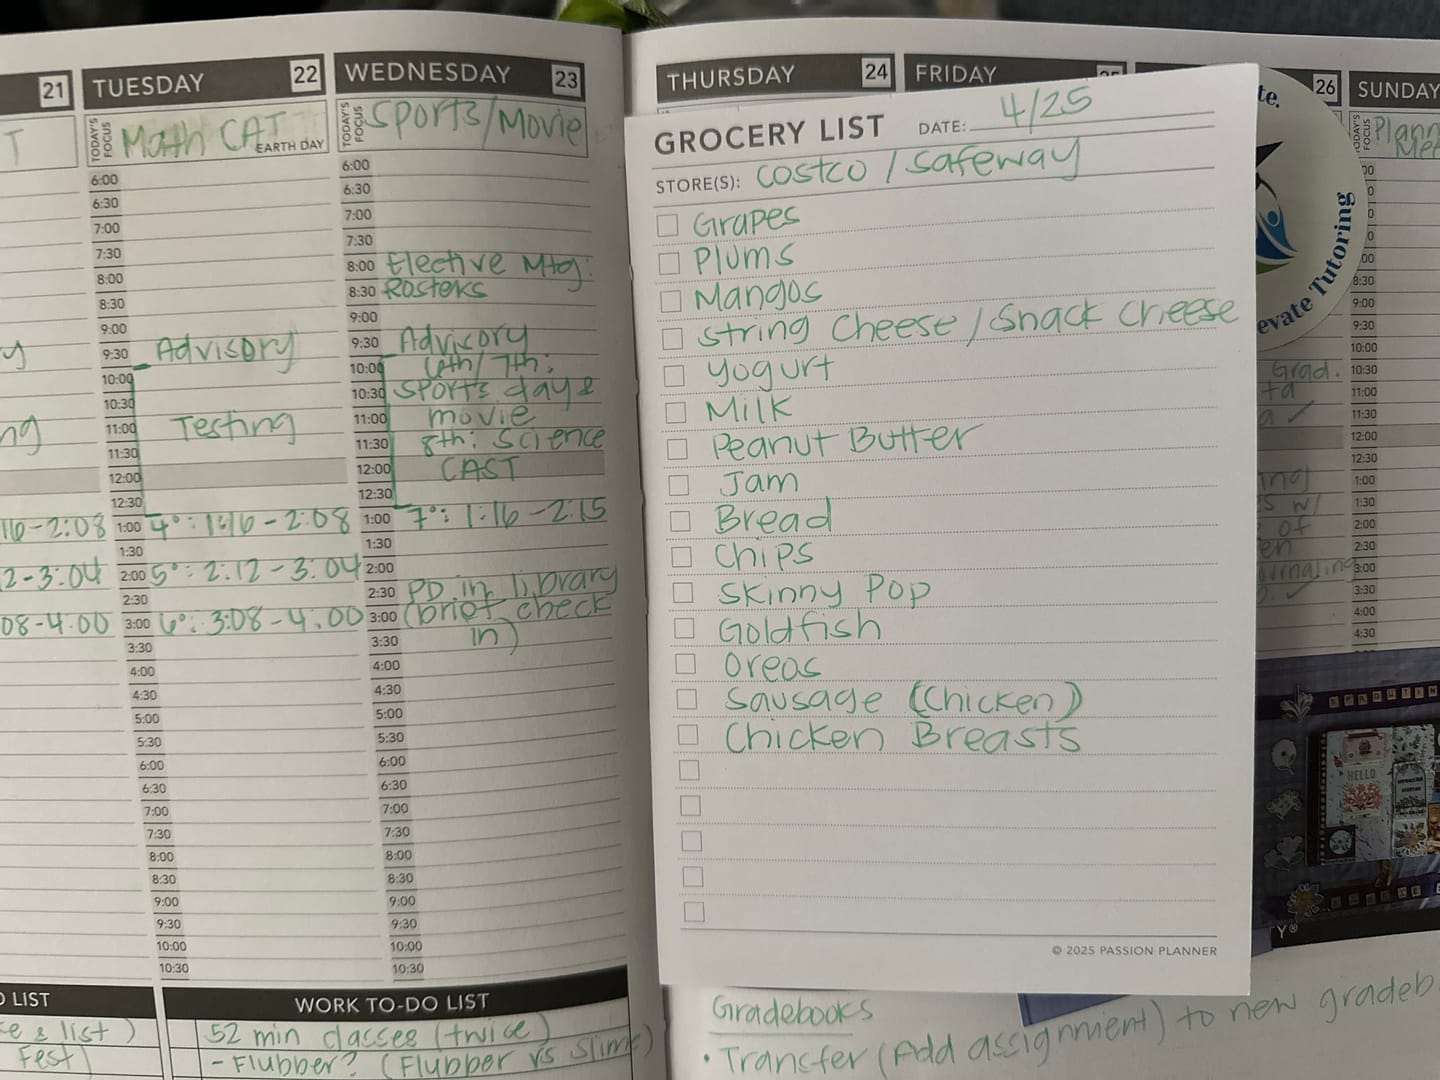 21
T
y
ng
16-2:08
2-3:04
08-4:00
TUESDAY 22
TODAY'S FOCUS
Math CAT
EARTH DAY
6:00
6:30
7:00
7:30
8:00
8:30
9:00
9:30 Advisory
10:00
10:30
11:00 Testing
11:30
12:00
12:30
1:00 4°: 1:16-2:08
1:30
2:00 5°: 2:12-3:04
2:30
3:00 6°: 3:08-4:00
3:30
4:00
4:30
5:00
5:30
6:00
6:30
7:00
7:30
8:00
8:30
9:00
9:30
10:00
10:30
WEDNESDAY 23
TODAY'S FOCUS
Sports/Movie
6:00
6:30
7:00
7:30
8:00 Elective Mtg:
8:30 Rosters
9:00
9:30 Advisory
10:00 6th/7th:
10:30 sports day &
11:00 movie
11:30 8th: Science
12:00 CAST
12:30
1:00 7°: 1:16-2:15
1:30
2:00
2:30 PD in library
3:00 (brief check
3:30 in)
4:00
4:30
5:00
5:30
6:00
6:30
7:00
7:30
8:00
8:30
9:00
9:30
10:00
10:30
O LIST
e & list)
Fest)
WORK TO-DO LIST
52 min classes (twice)
- Flubber? (Flubber vs Slime)
THURSDAY 24
FRIDAY 25
26
SUNDAY
GROCERY LIST DATE: 4/25
STORE(S): Costco / Safeway
Grapes
Plums
Mangos
String Cheese / Snack Cheese
Yogurt
Milk
Peanut Butter
Jam
Bread
Chips
Skinny Pop
Goldfish
Oreos
Sausage (Chicken)
Chicken Breasts
© 2025 PASSION PLANNER
te.
evate Tutoring
TODAY'S FOCUS
Plann
Mee
8:30
9:00
9:30
10:00
10:30
11:00
11:30
12:00
12:30
1:00
1:30
2:00
2:30
3:00
3:30
4:00
4:30
Grad.
ta
a ✓
ing
s w/
of
en
ournaling
HELLO
Y®
Gradebooks
• Transfer (Add assignment) to new gradeb